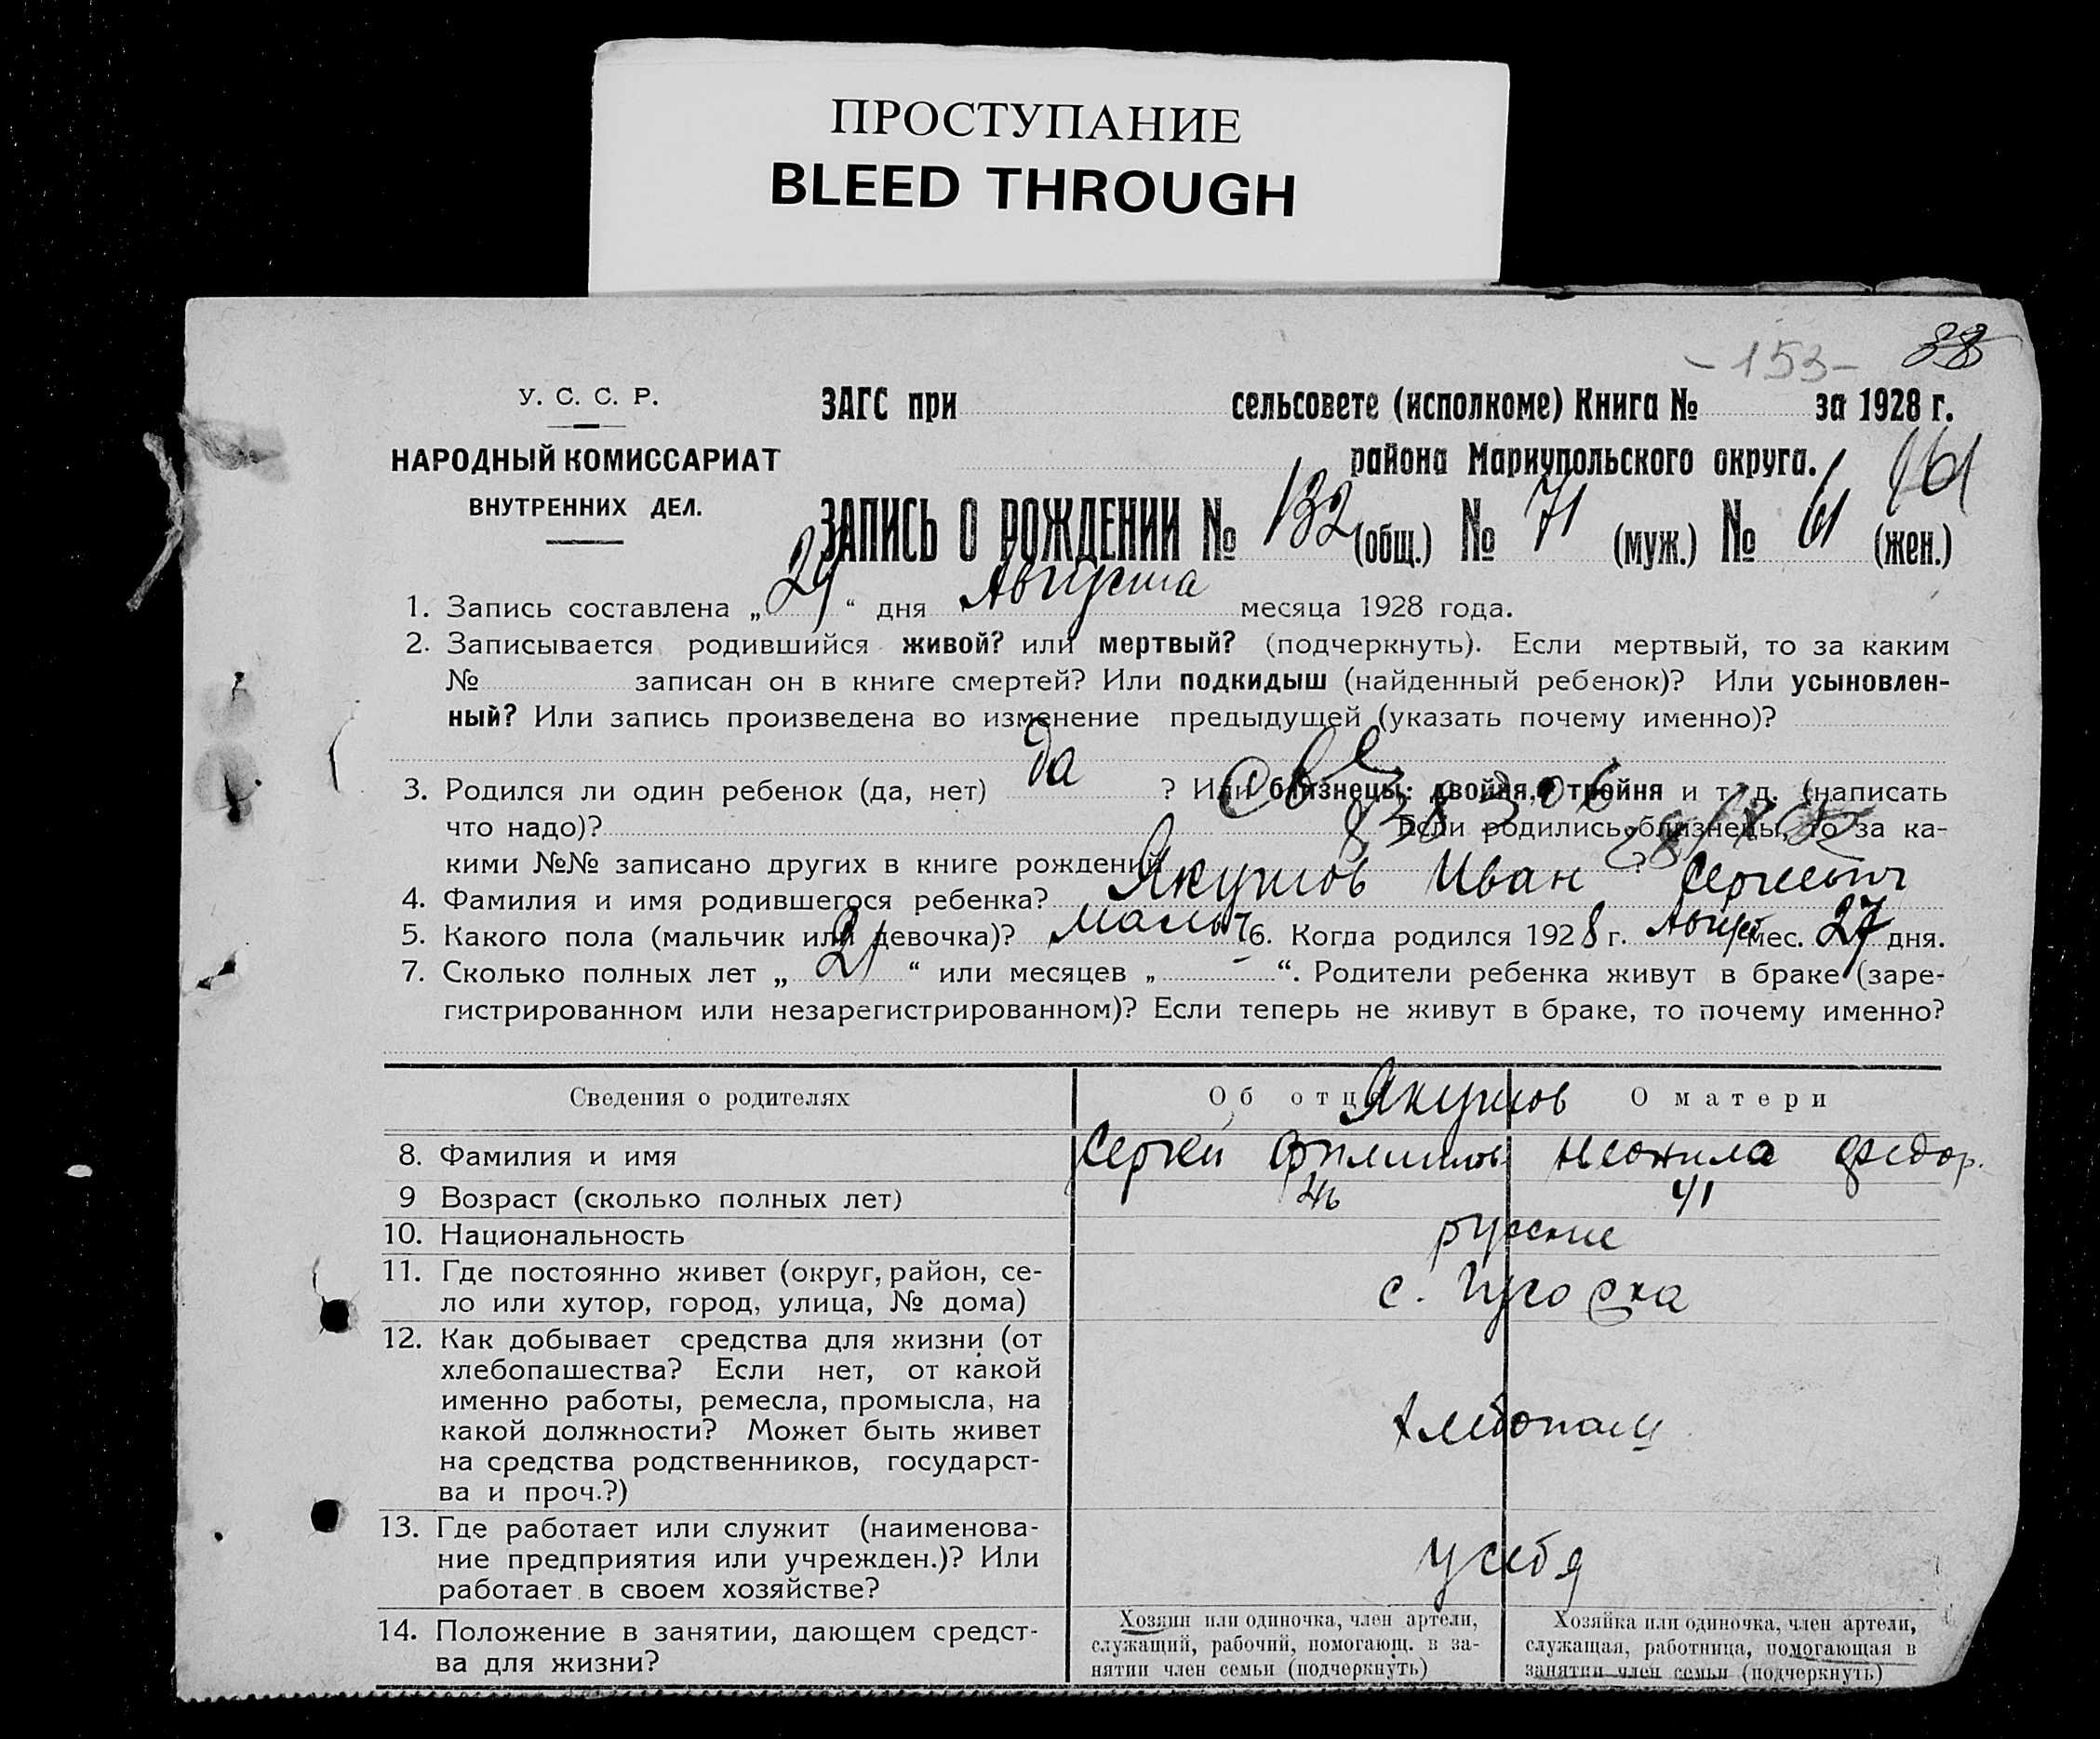 ПРОСТУПАНИЕ
BLEED THROUGH
- 153 - 38
У. С. С. Р.
НАРОДНЫЙ КОМИССАРИАТ
ВНУТРЕННИХ ДЕЛ.
ЗАГС при сельсовете (исполкоме) Книга № за 1928 г.
района Мариупольского округа.
161
ЗАПИСЬ О РОЖДЕНИИ № 132 (общ.) № 71 (муж.) № 61 (жен.)
1. Запись составлена „ 29 “ дня Августа месяца 1928 года.
2. Записывается родившийся живой? или мертвый? (подчеркнуть). Если мертвый, то за каким
№ записан он в книге смертей? Или подкидыш (найденный ребенок)? Или усыновлен-
ный? Или запись произведена во изменение предыдущей (указать почему именно)?
3. Родился ли один ребенок (да, нет) да ? Или близнецы: двойня, тройня и т. д. (написать
что надо)? Если родились близнецы, то за ка-
кими №№ записано других в книге рождений ?
4. Фамилия и имя родившегося ребенка? Якушов Иван Сергеевич
5. Какого пола (мальчик или девочка)? мальч 6. Когда родился 1928 г. Август мес. 27 дня.
7. Сколько полных лет „ 21 “ или месяцев „ - “. Родители ребенка живут в браке (заре-
гистрированном или незарегистрированном)? Если теперь не живут в браке, то почему именно?
Сведения о родителях Об отце О матери
Якушов
8. Фамилия и имя Сергей Филиппов Неонила Федор.
9 Возраст (сколько полных лет) 46 41
10. Национальность русские
11. Где постоянно живет (округ, район, се-
ло или хутор, город, улица, № дома)
с.
12. Как добывает средства для жизни (от
хлебопашества? Если нет, от какой
именно работы, ремесла, промысла, на
какой должности? Может быть живет
на средства родственников, государст-
ва и проч.?)
хлебопаш
13. Где работает или служит (наименова-
ние предприятия или учрежден.)? Или
работает в своем хозяйстве?
у себя
14. Положение в занятии, дающем средст-
ва для жизни?
Хозяин или одиночка, член артели,
служащий, рабочий, помогающ. в за-
нятии член семьи (подчеркнуть)
Хозяйка или одиночка, член артели,
служащая, работница, помогающая в
занятии член семьи (подчеркнуть)